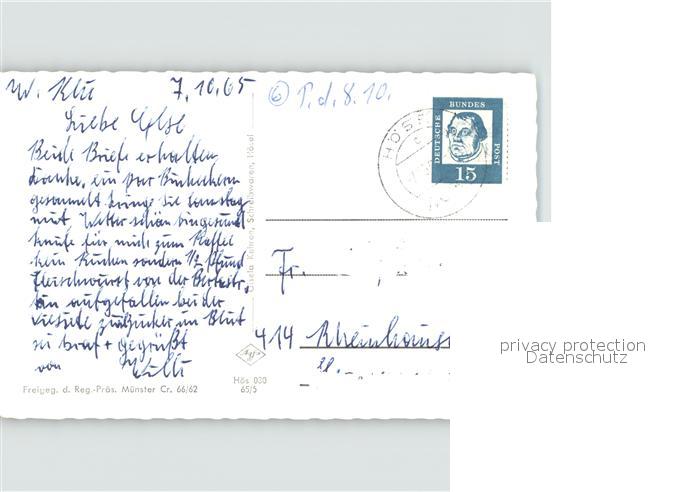 W. Klu 7.10.65
6 P.d. 8.10.
Liebe Else
Beide Briefe erhalten,
danke, ein par Bucheckern
gesammelt bringe sie Samstag
mit Wetter schön bin gesund
kaufe für mich zum Kaffee
kein Kuchen sondern 1/2 Pfund
Fleischwurst von der
bin aufgefallen bei der
Visite zu Zucker im Blut
sei brav + gegrüßt
von Willi
DEUTSCHE BUNDES POST
15
HÖS
Fr.
414 Rheinhaus
Agfa
Freigeg. d. Reg.-Präs. Münster Cr. 66/62
Hös 030
65/5
Schreibwaren, Hösel
privacy protection
Datenschutz